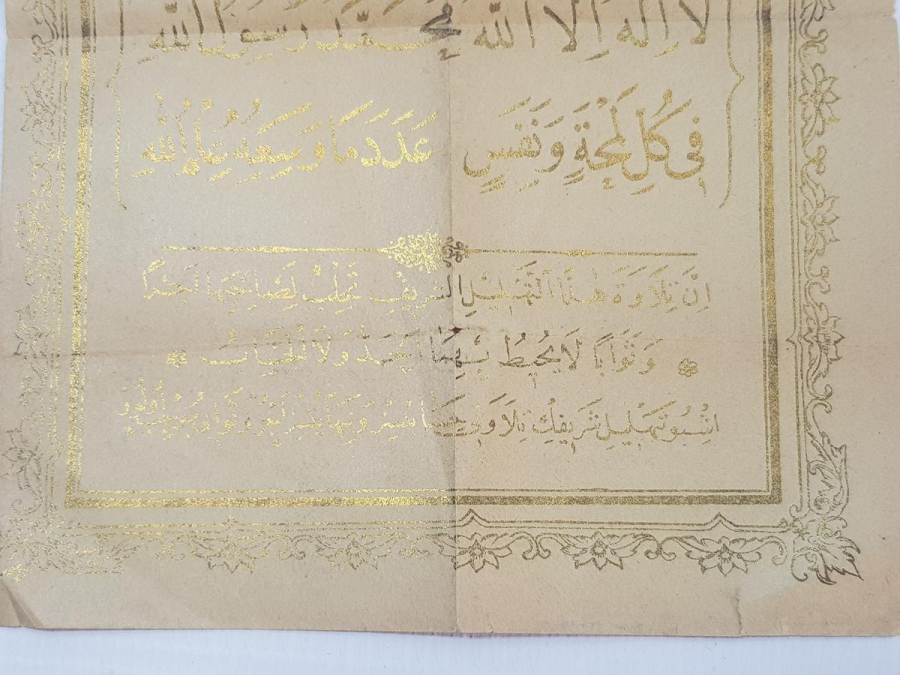 لَا اِلٰهَ اِلَّا اللّٰه مُحَمَّدٌ رَسُولُ اللّٰهِ
فِى كُلِّ لَمْحَةٍ وَنَفَسٍ عَدَدَ مَا وَسِعَهُ عِلْمُ اللّٰهِ
اِنَّ تِلَاوَةَ هٰذَا التَّهْلِيلِ الشَّرِيفِ تَجْلِبُ لِصَاحِبِهَا اَجْرًا
وَثَوَابًا لَا يُحِيطُ بِهِمَا الْحَدُّ وَلَا الْحِسَابُ
اِشْبُو تَهْلِيلِ شَرِيفِكْ تِلَاوَتِى